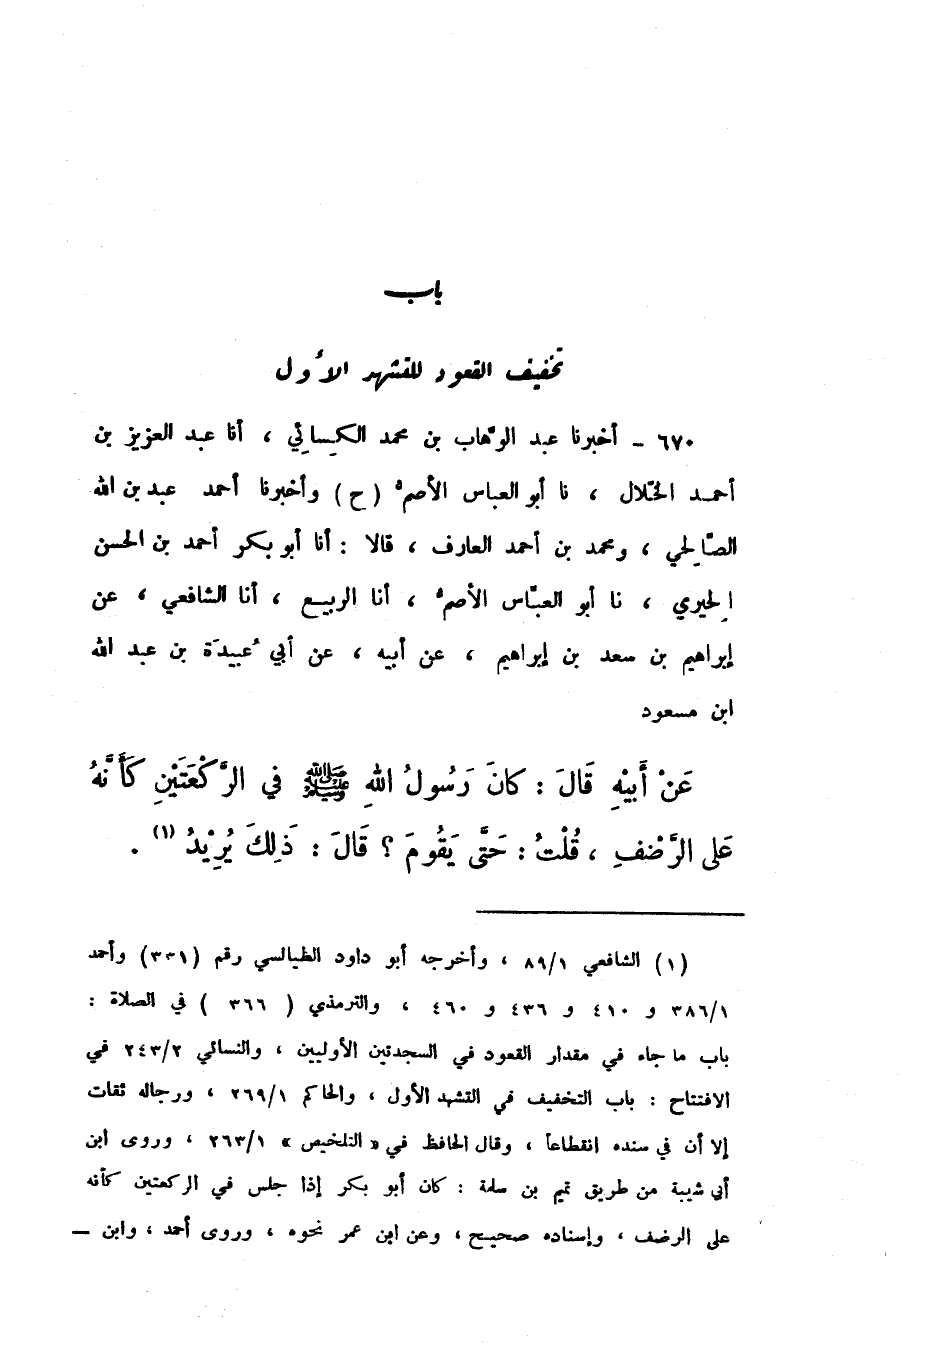 باب
تخفيف القعود للتشهد الأول
٦٧٠ - أخبرنا عبد الوهّاب بن محمد الكِسائي ، أنا عبد العزيز بن
أحمد الخلّال ، نا أبو العباس الأصمّ ( ح ) وأخبرنا أحمد عبد بن الله
الصّالحي ، ومحمد بن أحمد العارف ، قالا : أنا أبو بكر أحمد بن الحسن
الحِيري ، نا أبو العبّاس الأصمّ ، أنا الربيع ، أنا الشافعي ، عن
إبراهيم بن سعد بن إبراهيم ، عن أبيه ، عن أبي عُبيدَة بن عبد الله
ابن مسعود
عَنْ أَبِيْهِ قَالَ : كَانَ رَسُولُ اللهِ ﷺ في الرَّكْعَتَيْنِ كَأَنَّهُ
عَلى الرَّضْفِ ، قُلْتُ : حَتَّى يَقُومَ ؟ قَالَ : ذَلِكَ يُرِيْدُ (١) .
(١) الشافعي ٨٩/١ ، وأخرجه أبو داود الطيالسي رقم (٣٣١) وأحمد
٣٨٦/١ و ٤١٠ و ٤٣٦ و ٤٦٠ ، والترمذي ( ٣٦٦ ) في الصلاة :
باب ما جاء في مقدار القعود في السجدتين الأوليين ، والنسائي ٢٤٣/٢ في
الافتتاح : باب التخفيف في التشهد الأول ، والحاكم ٢٦٩/١ ، ورجاله ثقات
إلا أن في سنده انقطاعاً ، وقال الحافظ في « التلخيص » ٢٦٣/١ ، وروى ابن
أبي شيبة من طريق تميم بن سلمة : كان أبو بكر إذا جلس في الركعتين كأنه
على الرضف ، وإسناده صحيح ، وعن ابن عمر نحوه ، وروى أحمد ، وابن —